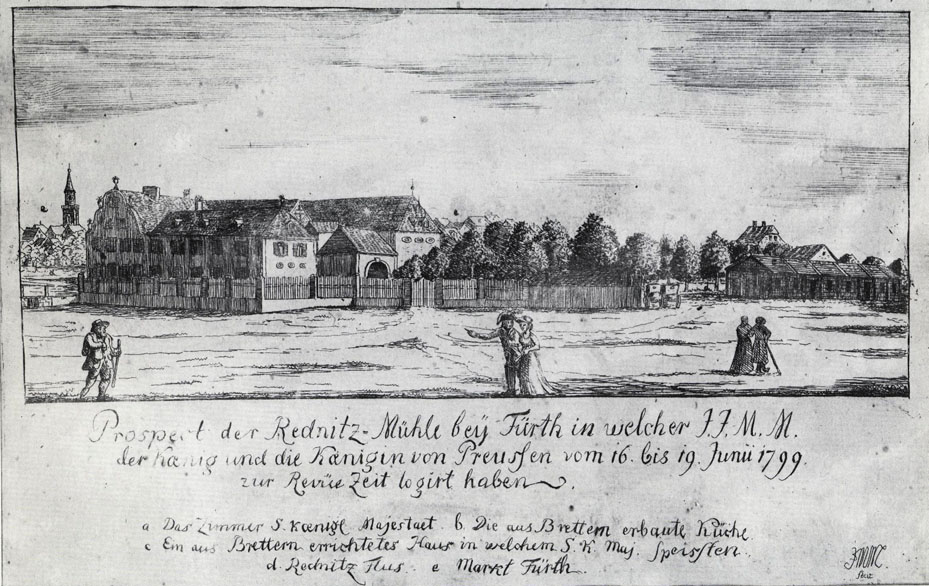 Prospect der Rednitz-Mühle beÿ Fürth in welcher J.J.M.M.
der Kœnig und die Kœnigin von Preussen vom 16. bis 19. Junii 1799.
zur Revüe Zeit logirt haben.
a Das Zimmer S. Kœnigl Majestaet. b. Die aus Brettern erbaute Küche
c Ein aus Brettern errichtetes Haus in welchem S. K. Maj. speissten.
d. Rednitz Flus. e Marckt Fürth.